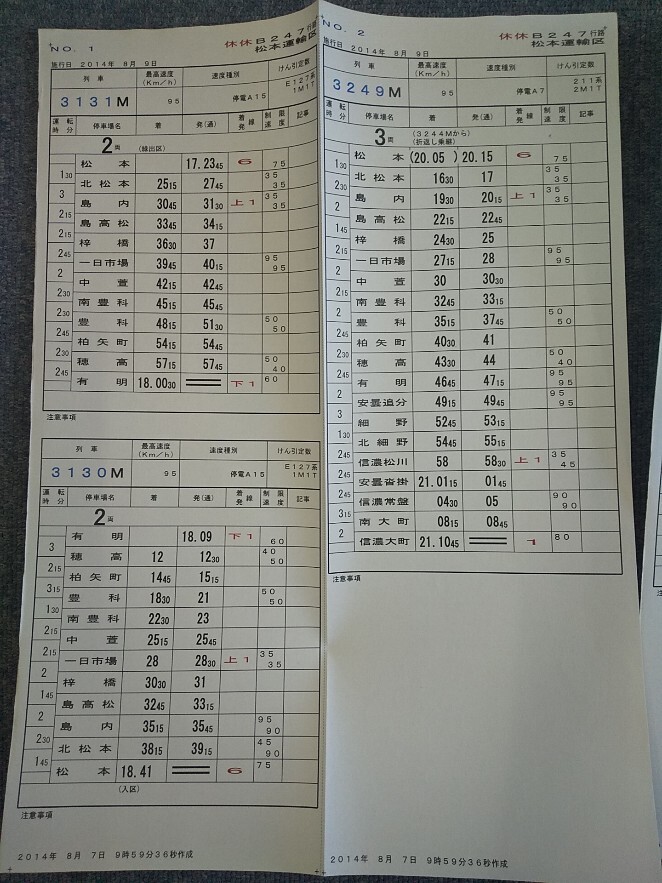 NO. 1
休休B247行路
施行日 2014年 8月 9日 松本運輸区
列車 最高速度(Km/h) 速度種別 けん引定数
3131M 95 停電A15 E127系 1M1T
運転時分 停車場名 着 発(通) 着発線 制限速度 記事
2両 (線出区)
松本 17.23 45 6 75
1 30
北松本 25 15 27 45 35 35
3
島内 30 45 31 30 上1 35 35
2 15
島高松 33 45 34 15
2 15
梓橋 36 30 37
2 45
一日市場 39 45 40 15 95 95
2
中萱 42 15 42 45
2 30
南豊科 45 15 45 45
2 30
豊科 48 15 51 30 50 50
2 45
柏矢町 54 15 54 45
2 30
穂高 57 15 57 45 50 40
2 45
有明 18.00 30 下1 60
注意事項
列車 最高速度(Km/h) 速度種別 けん引定数
3130M 95 停電A15 E127系 1M1T
運転時分 停車場名 着 発(通) 着発線 制限速度 記事
2両
有明 18.09 下1 60
3
穂高 12 12 30 40 50
2 15
柏矢町 14 45 15 15
3 15
豊科 18 30 21 50 50
1 30
南豊科 22 30 23
2 15
中萱 25 15 25 45
2 15
一日市場 28 28 30 上1 35 35
2
梓橋 30 30 31
1 45
島高松 32 45 33 15
2
島内 35 15 35 45 95 90
2 30
北松本 38 15 39 15 45 90
1 45
松本 18.41 6 75
(入区)
注意事項
2014年 8月 7日 9時59分36秒作成
NO. 2
休休B247行路
施行日 2014年 8月 9日 松本運輸区
列車 最高速度(Km/h) 速度種別 けん引定数
3249M 95 停電A7 211系 2M1T
運転時分 停車場名 着 発(通) 着発線 制限速度 記事
3両 (3244Mから) (折返し乗継)
松本 (20.05) 20.15 6 75
1 30
北松本 16 30 17 35 35
2 30
島内 19 30 20 15 上1 35 35
2
島高松 22 15 22 45
1 45
梓橋 24 30 25
2 15
一日市場 27 15 28 95 95
2
中萱 30 30 30
2 15
南豊科 32 45 33 15
2
豊科 35 15 37 45 50 50
2 45
柏矢町 40 30 41
2 30
穂高 43 30 44 50 40
2 45
有明 46 45 47 15 95 95
2
安曇追分 49 15 49 45 95 95
3
細野 52 45 53 15
1 30
北細野 54 45 55 15
2 45
信濃松川 58 58 30 上1 35 45
2 45
安曇沓掛 21.01 15 01 45
2 45
信濃常盤 04 30 05 90 90
3 15
南大町 08 15 08 45
2
信濃大町 21.10 45 1 80
注意事項
2014年 8月 7日 9時59分36秒作成